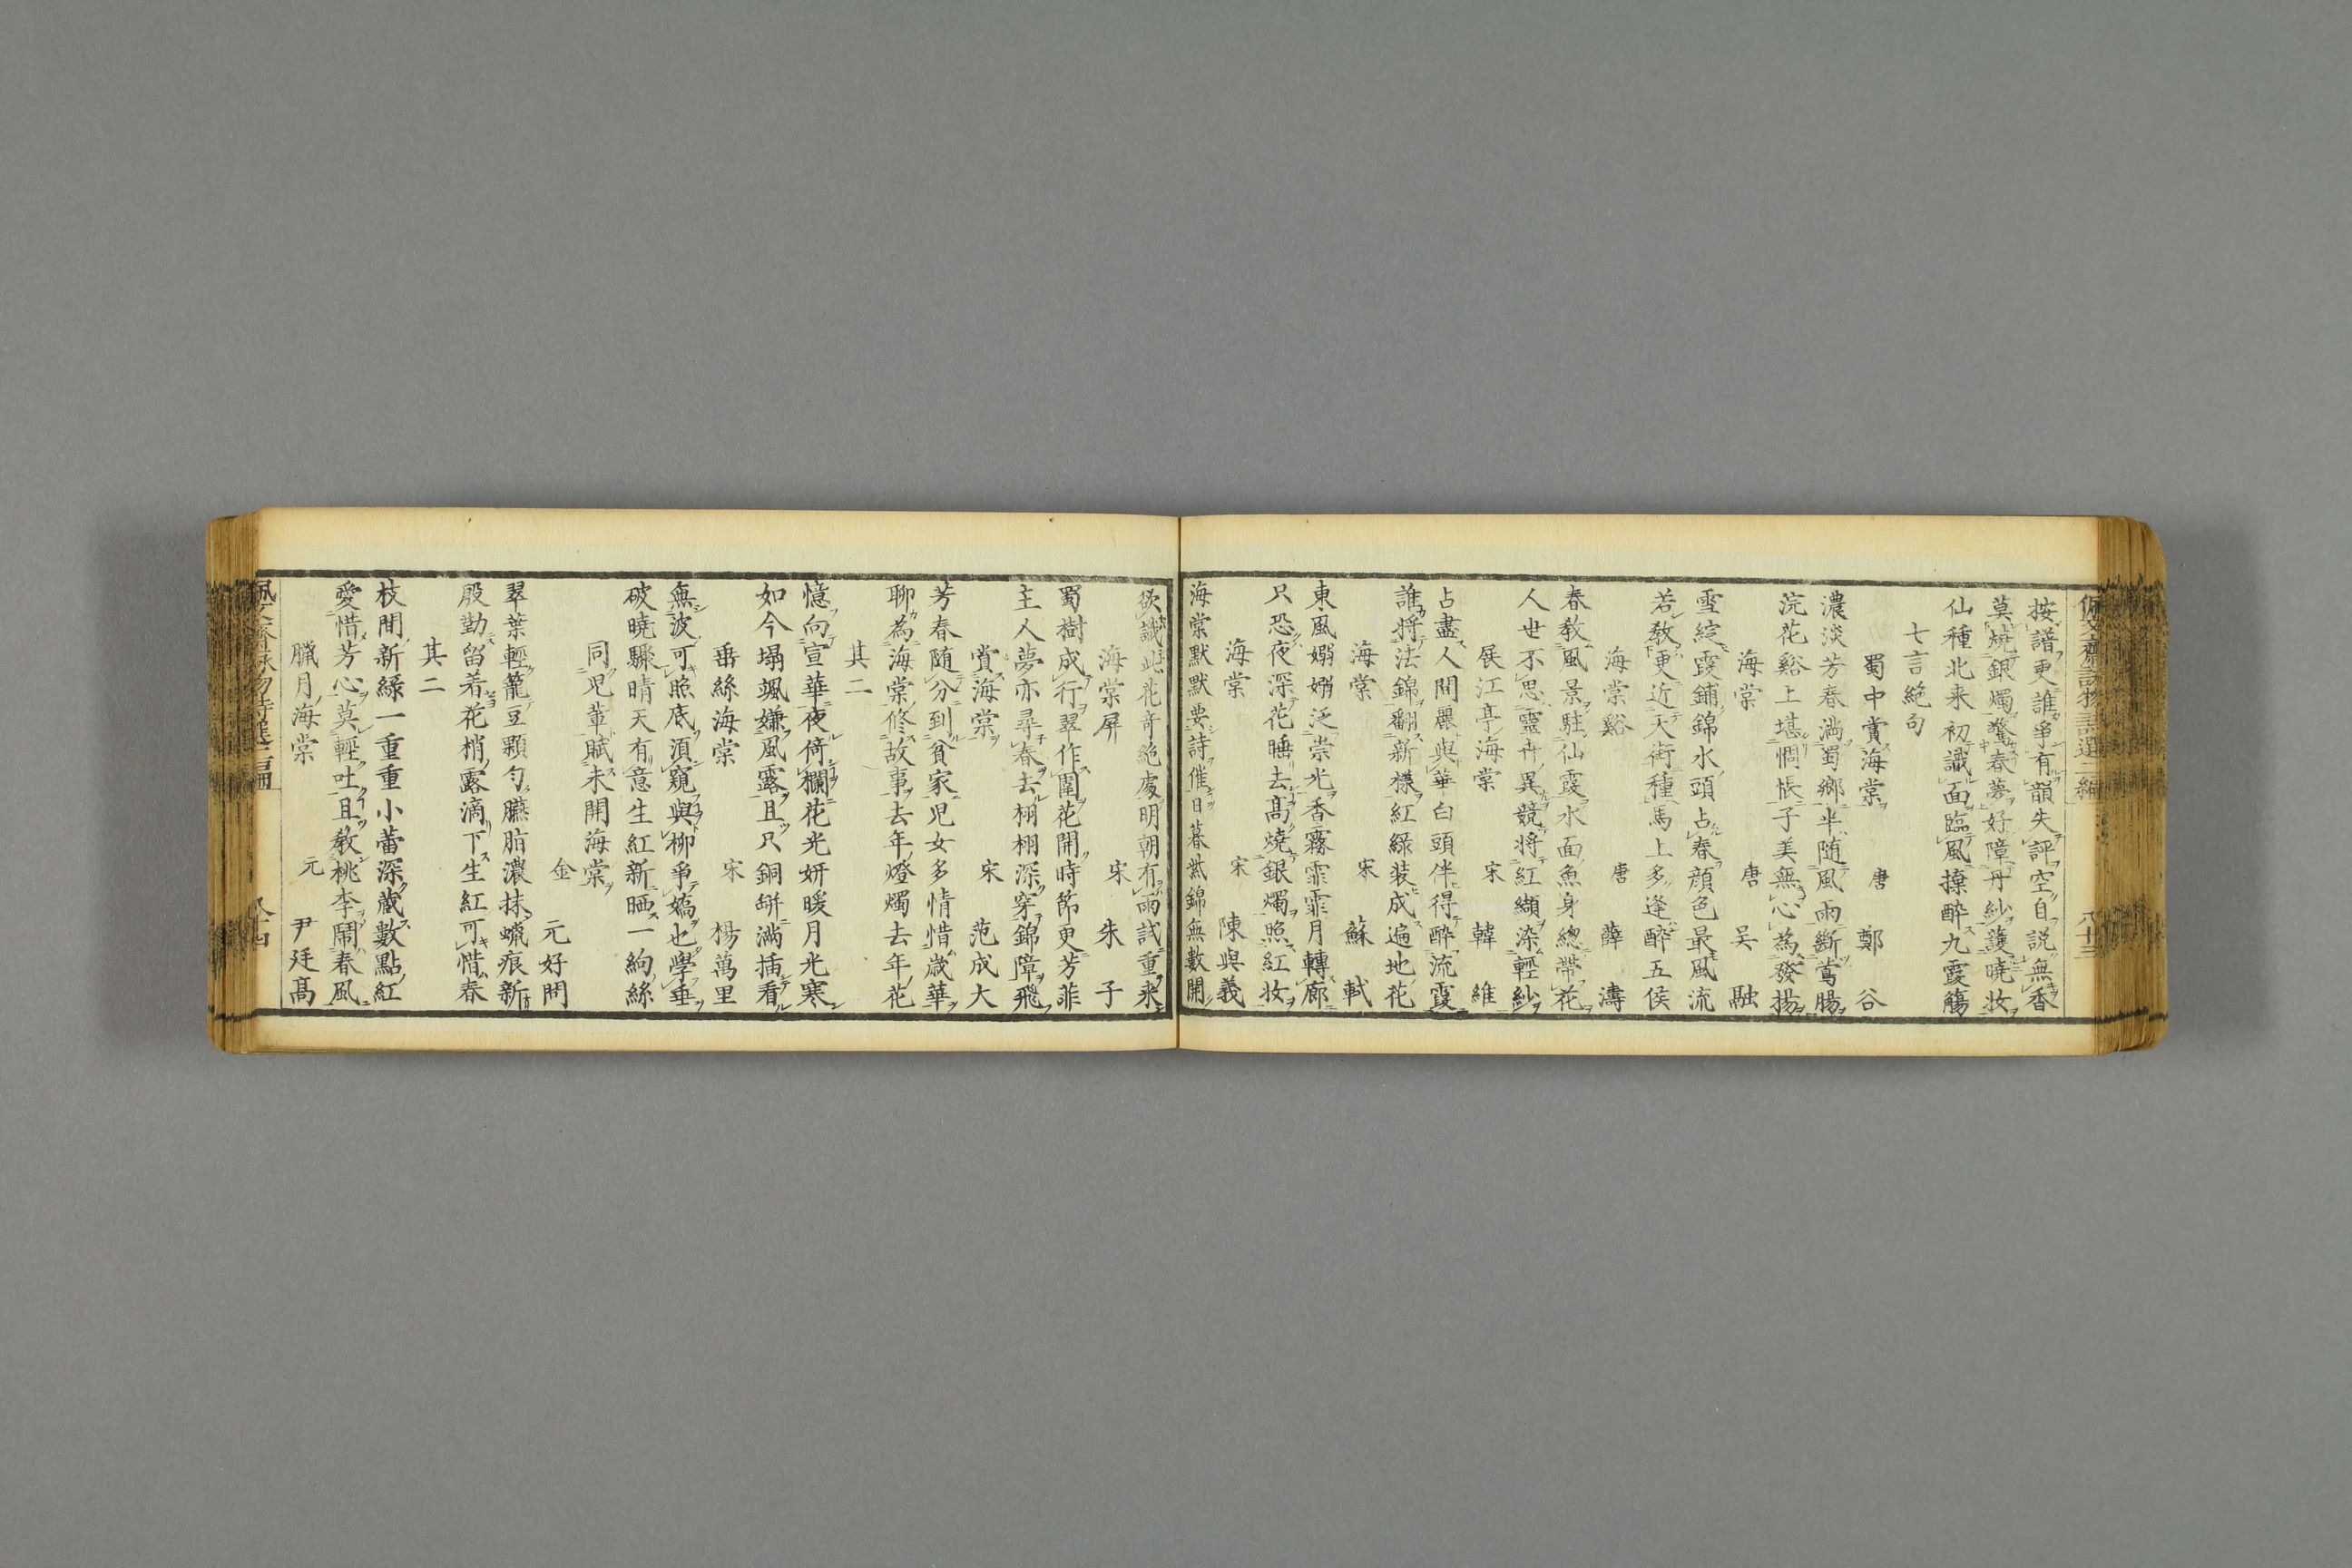 佩文齋詠物詩選二編 八十三
按譜更誰爭有韻失評空自説無香
莫燒銀燭驚春夢好障丹紗護曉妝
仙種北来初識面臨風擽醉九霞觴
七言絶句
蜀中賞海棠 唐 鄭谷
濃淡芳春満蜀鄉半随風雨斷鶯腸
浣花谿上堪惆悵子美無心為發揚
海棠 唐 吴融
雪綻霞鋪錦水頭占春顔色最風流
若教更近天街種馬上多逢醉五侯
海棠谿 唐 薛濤
春教風景駐仙霞水面魚身總帶花
人世不思靈卉異競将紅纈染輕紗
展江亭海棠 宋 韓維
占盡人間麗與華白頭伴得醉流霞
誰将法錦翻新樣紅緑装成遍地花
海棠 宋 蘇軾
東風嫋嫋泛崇光香霧霏霏月轉廊
只恐夜深花睡去高燒銀燭照紅妝
海棠 宋 陳與義
海棠默默要詩催日暮紫錦無數開
欲識此花奇絶處明朝有雨試重来
海棠屏 宋 朱子
蜀樹成行翠作圍花開時節更芳菲
主人夢亦尋春去栩栩深穿錦障飛
賞海棠 宋 范成大
芳春随分到貧家児女多情惜歳華
聊為海棠修故事去年燈燭去年花
其二
憶向宣華夜倚欄花光妍暖月光寒
如今塌颯嫌風露且只銅缾満插看
垂絲海棠 宋 楊萬里
無波可照底湏窺與柳爭嬌也學垂
破曉驟晴天有意生紅新晒一絇絲
同児輩賦未開海棠 金 元好問
翠葉輕籠豆顆勻臙脂濃抹蠟痕新
殷勤留着花梢露滴下生紅可惜春
其二
枝間新緑一重重小蕾深蔵數點紅
愛惜芳心莫輕吐且教桃李鬧春風
臘月海棠 元 尹廷高
佩文齋詠物詩選二編 八十四